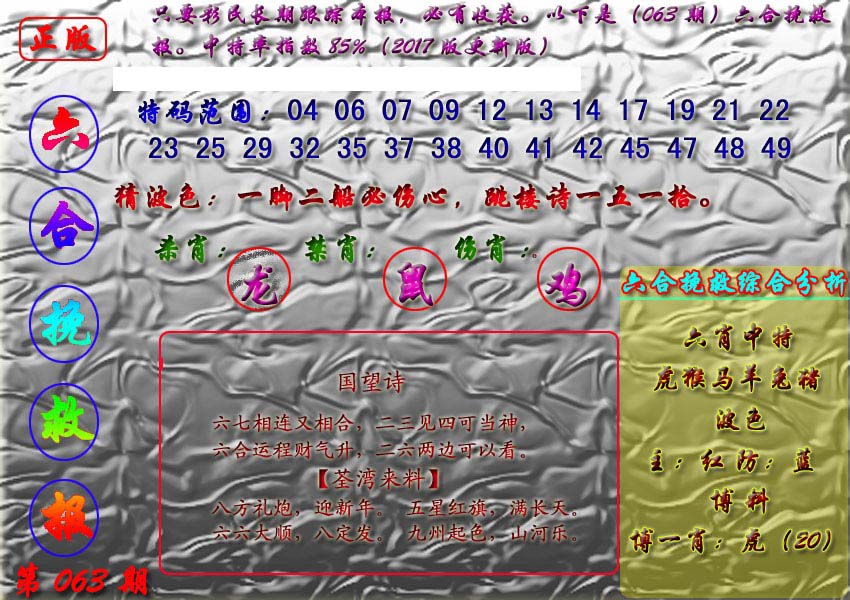 正版
只要彩民长期跟踪本报，必有收获。以下是（063期）六合挽救
报。中特率指数85%（2017版更新版）
六合挽救报
第063期
特码范围：04 06 07 09 12 13 14 17 19 21 22
23 25 29 32 35 37 38 40 41 42 45 47 48 49
猜波色：一脚二船必伤心，跳楼诗一五一拾。
杀肖：龙 禁肖：鼠 伤肖：鸡
国望诗
六七相连又相合，二三见四可当神，
六合运程财气升，二六两边可以看。
【荃湾来料】
八方礼炮，迎新年。 五星红旗，满长天。
六六大顺，八定发。 九州起色，山河乐。
六合挽救综合分析
六肖中特
虎猴马羊兔猪
波色
主：红防：蓝
博料
博一肖：虎（20）